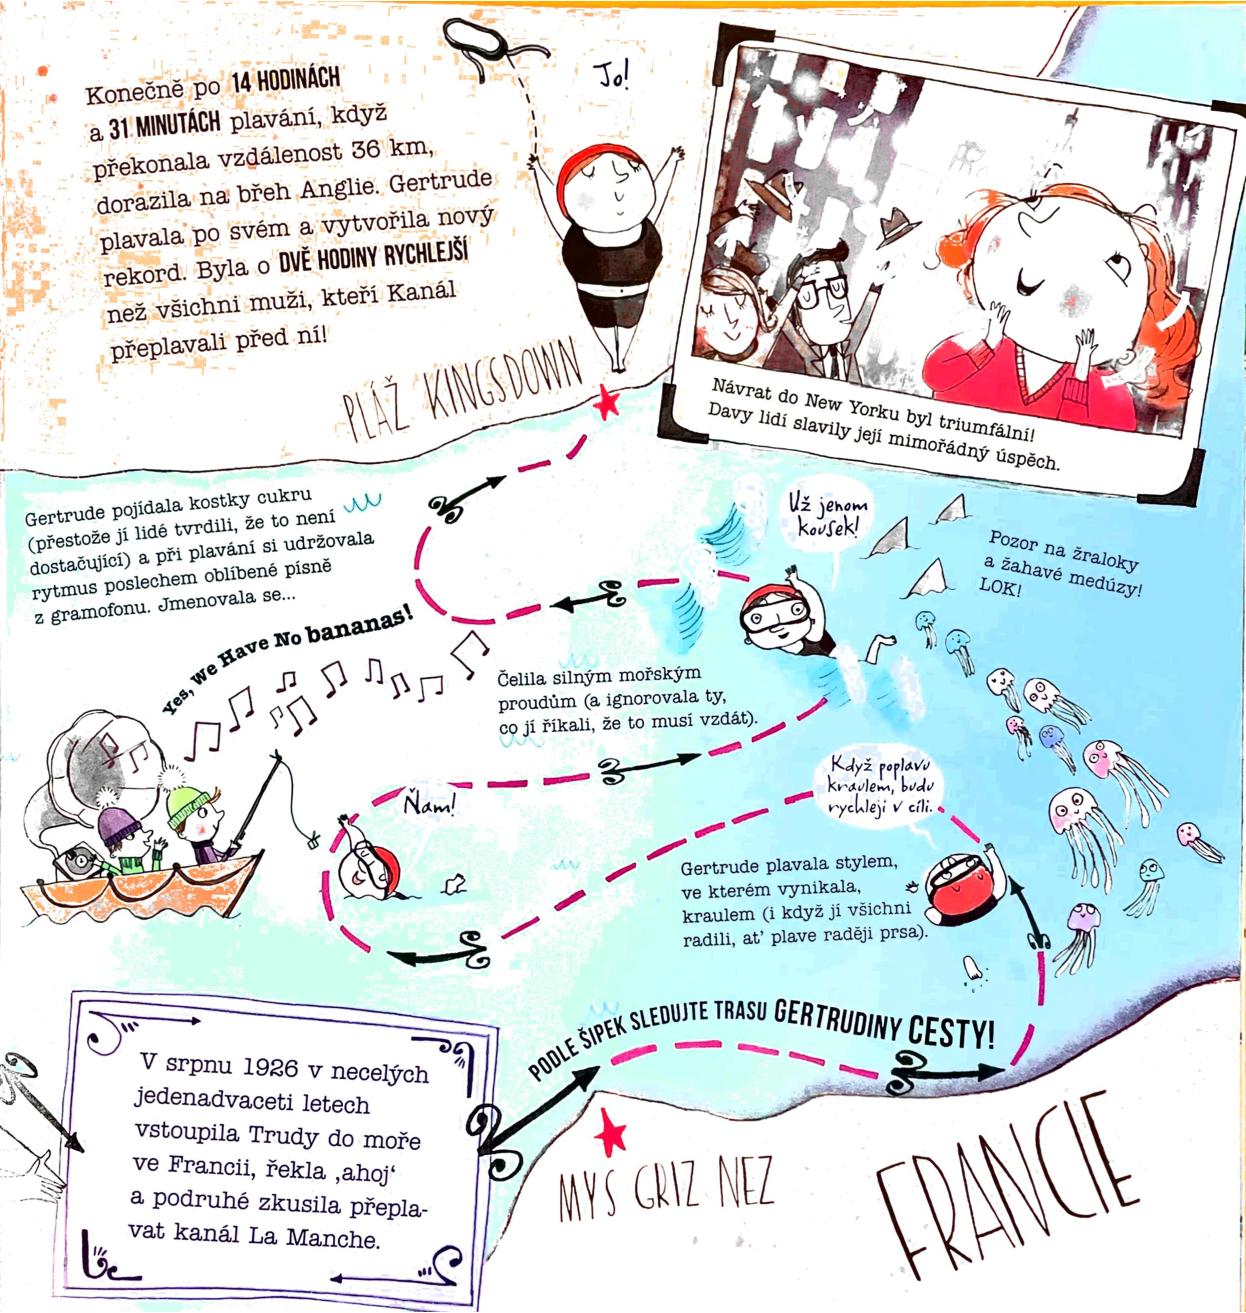 Konečně po 14 HODINÁCH
a 31 MINUTÁCH plavání, když
překonala vzdálenost 36 km,
dorazila na břeh Anglie. Gertrude
plavala po svém a vytvořila nový
rekord. Byla o DVĚ HODINY RYCHLEJŠÍ
než všichni muži, kteří Kanál
přeplavali před ní!
Jo!
PLÁŽ KINGSDOWN
Návrat do New Yorku byl triumfální!
Davy lidí slavily její mimořádný úspěch.
Gertrude pojídala kostky cukru
(přestože jí lidé tvrdili, že to není
dostačující) a při plavání si udržovala
rytmus poslechem oblíbené písně
z gramofonu. Jmenovala se...
Yes, We Have No bananas!
Už jenom
kousek!
Pozor na žraloky
a žahavé medúzy!
LOK!
Čelila silným mořským
proudům (a ignorovala ty,
co jí říkali, že to musí vzdát).
Ňam!
Když poplavu
kraulem, budu
rychleji v cíli.
Gertrude plavala stylem,
ve kterém vynikala,
kraulem (i když jí všichni
radili, ať plave raději prsa).
PODLE ŠIPEK SLEDUJTE TRASU GERTRUDINY CESTY!
V srpnu 1926 v necelých
jedenadvaceti letech
vstoupila Trudy do moře
ve Francii, řekla ‚ahoj‘
a podruhé zkusila přepla-
vat kanál La Manche.
MYS GRIZ NEZ
FRANCIE